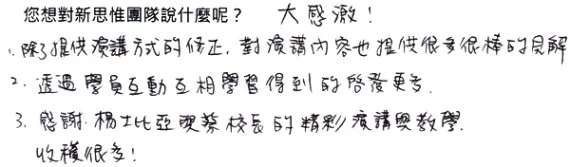 您想對新思惟團隊說什麼呢？ 大感激！
1. 除了提供演講方式的修正，對演講內容也提供很多很棒的見解
2. 透過學員互動互相學習得到的啟發更多.
3. 感謝 楊士比亞與蔡校長的精彩演講與教學.
收穫很多！